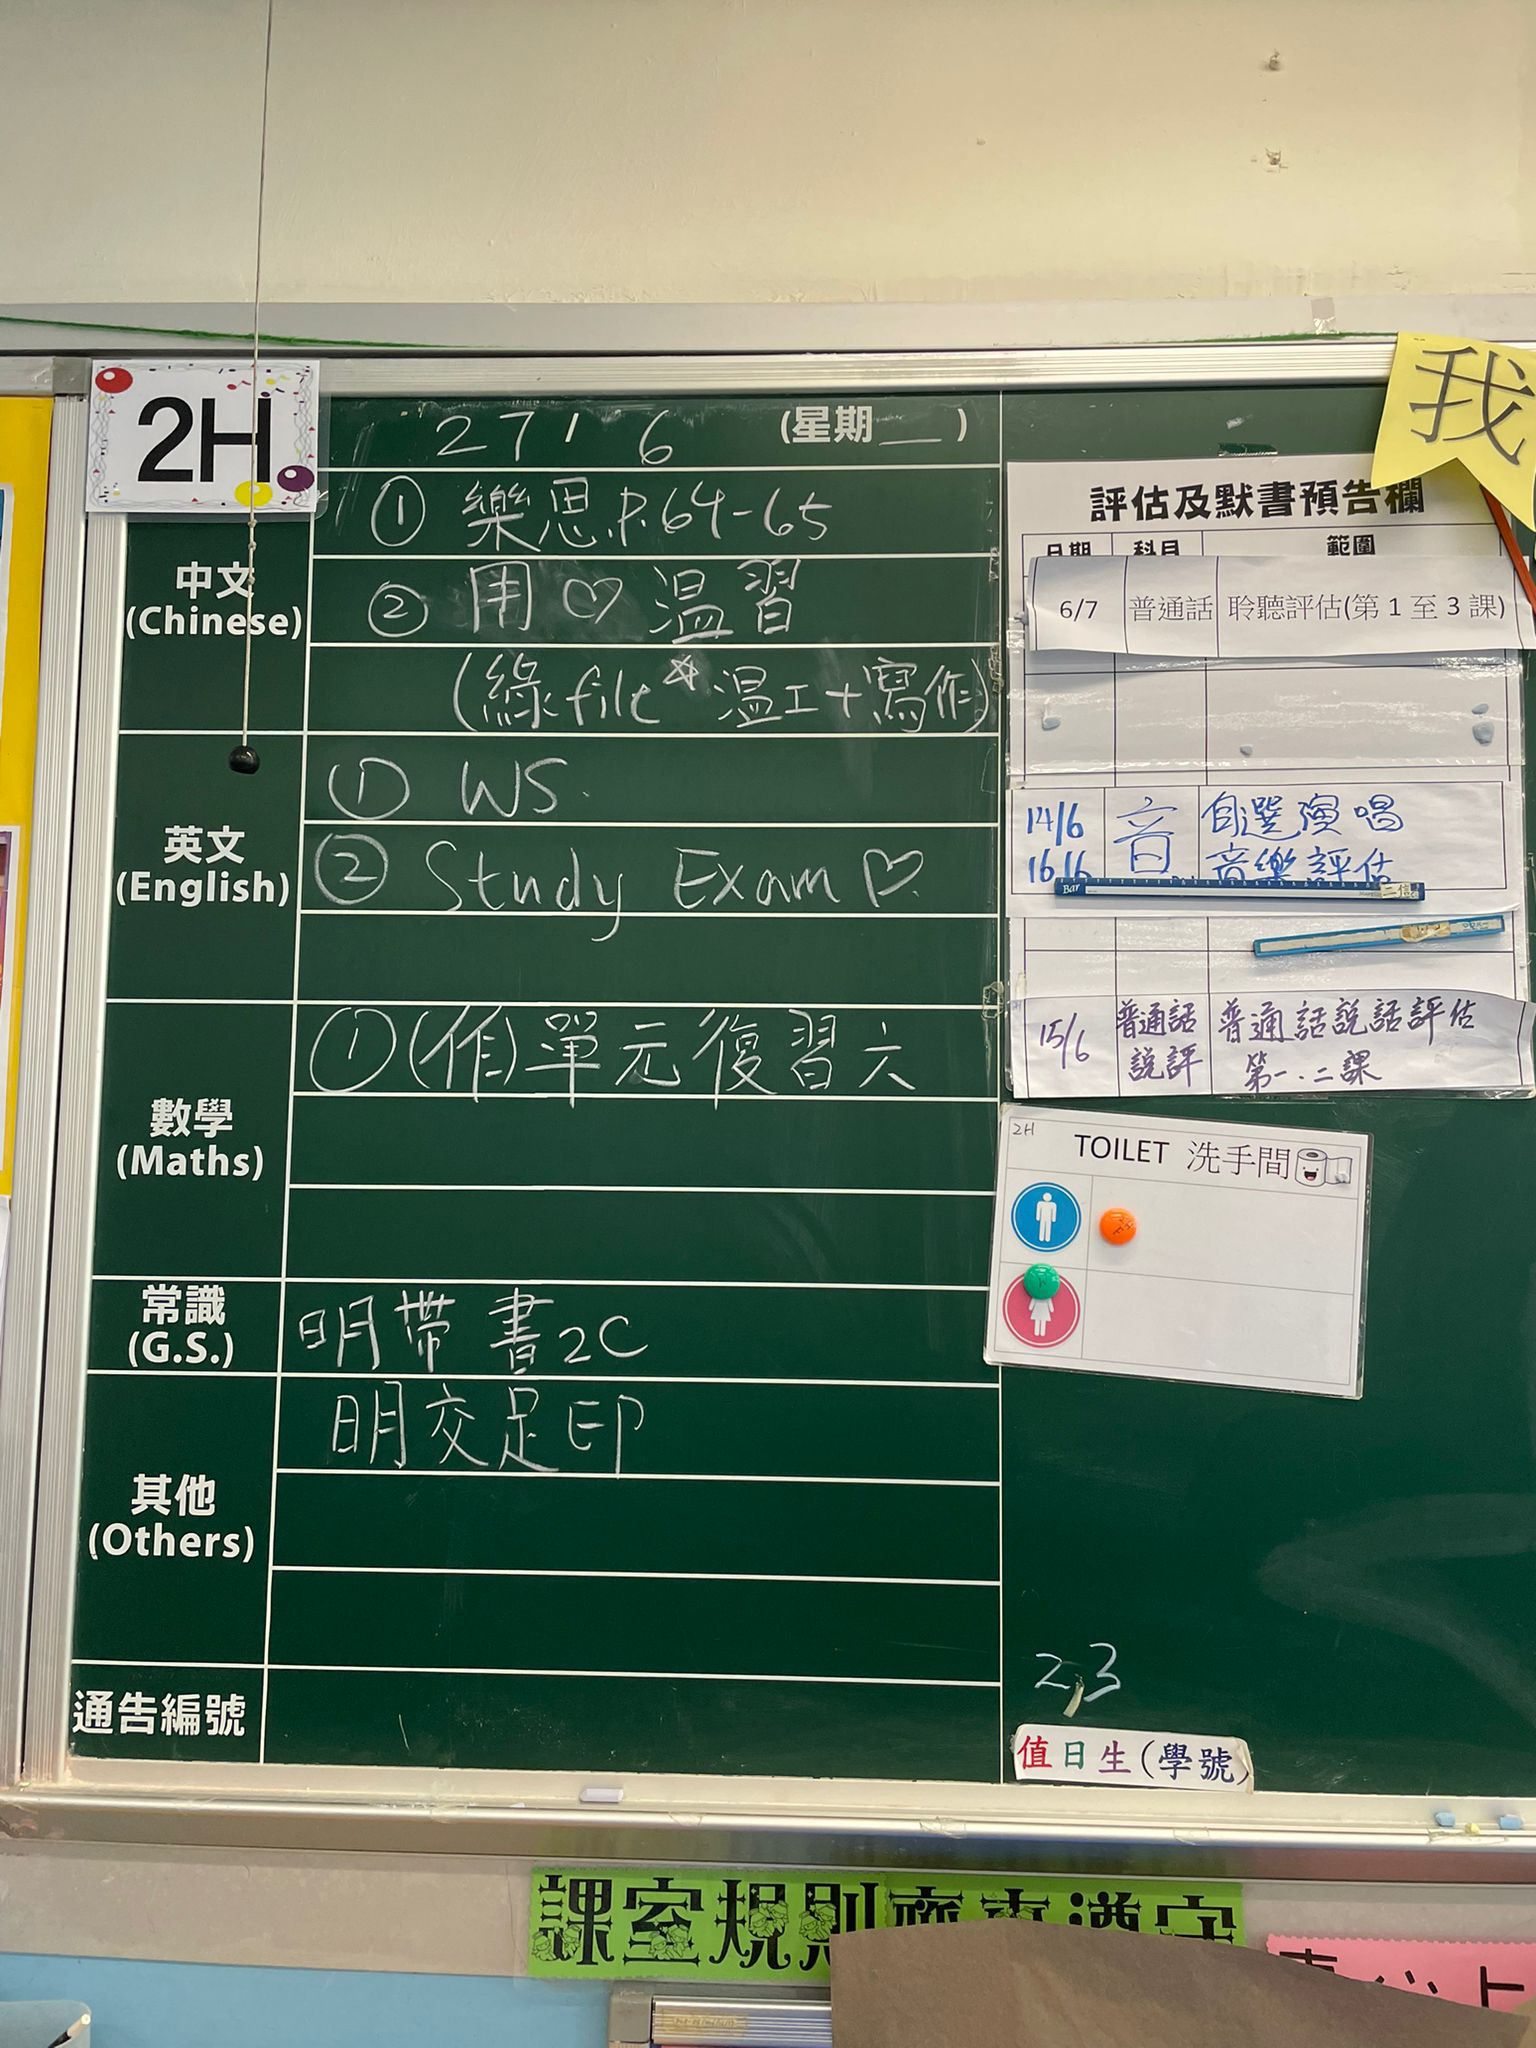 2H
27 / 6 (星期__)
中文
(Chinese)
① 樂思 P.64-65
② 用♡溫習
(綠file*溫工+寫作)
英文
(English)
① WS.
② Study Exam ♡.
數學
(Maths)
① (作)單元復習六
常識
(G.S.)
明帶書2C
其他
(Others)
明交足印
通告編號
我
評估及默書預告欄
日期 科目 範圍
6/7 普通話 聆聽評估(第 1 至 3 課)
14/6 音 自選演唱
16/6 音樂評估
Bar
15/6 普通話 普通話說話評估
說評 第一、二課
2H
TOILET 洗手間
2,3
值日生(學號)
課室規則齊來遵守